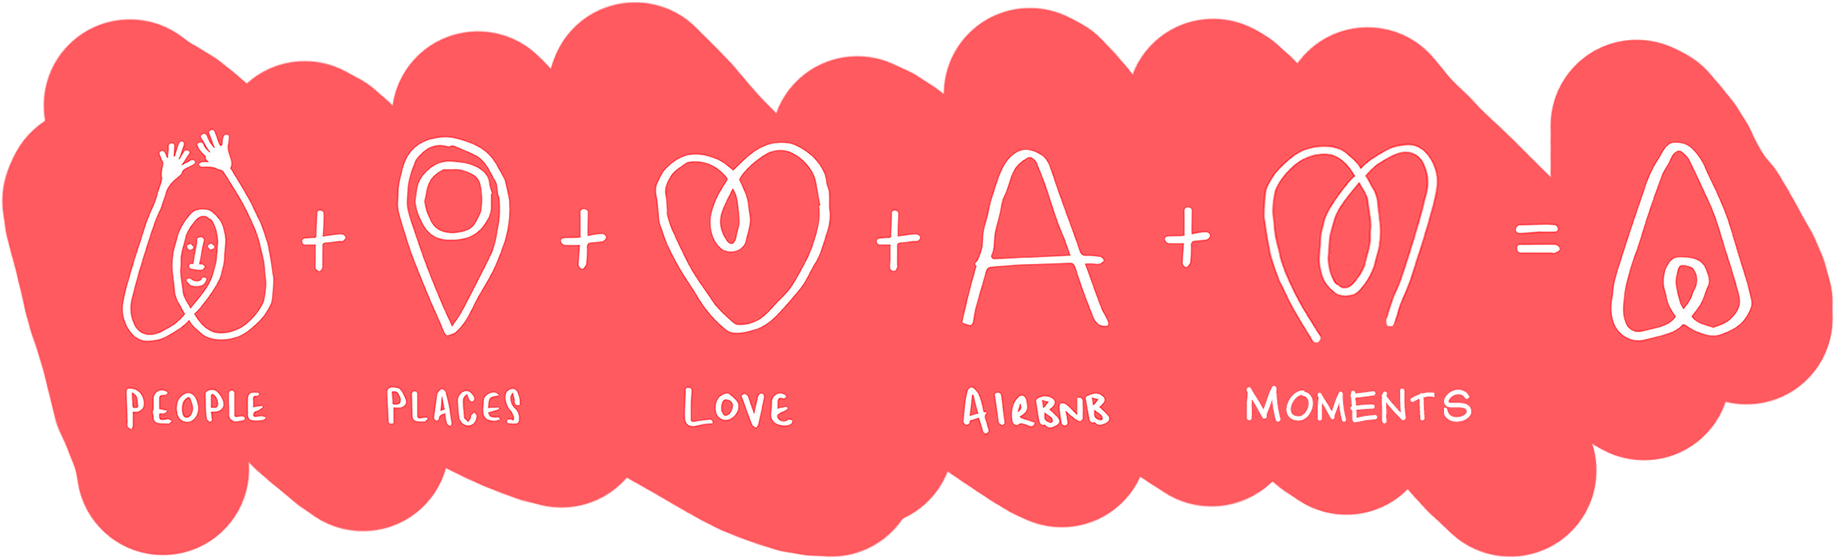 PEOPLE + PLACES + LOVE + AIRBNB + MOMENTS =